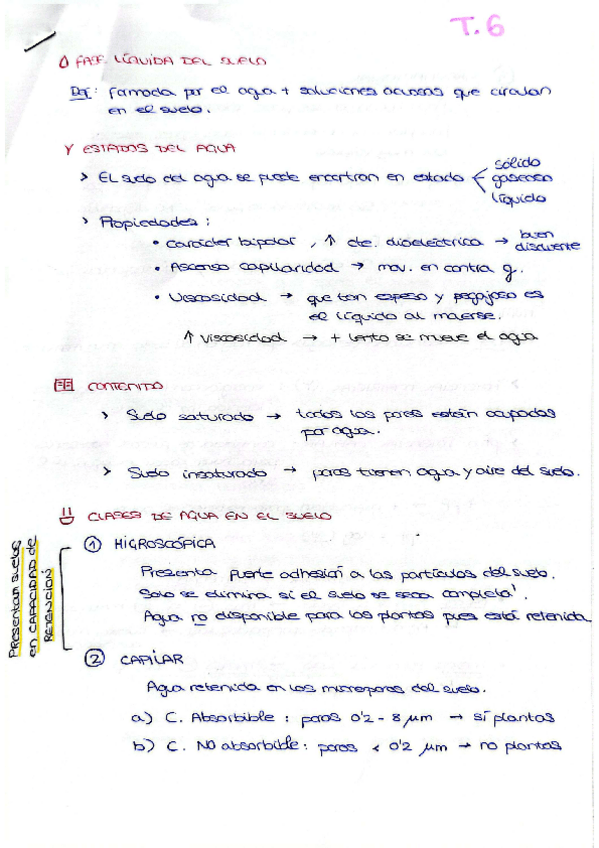 T.6
FASE LÍQUIDA DEL SUELO
Def: Formada por el agua + soluciones acuosas que circulan
en el suelo.
ESTADOS DEL AGUA
> EL suelo del agua se puede encontrar en estado
sólido
gaseoso
líquido
> Propiedades:
• Carácter bipolar, ↑ cte. dieléctrica → buen
disolvente
• Ascenso capilaridad → mov. en contra g.
• Viscosidad → que tan espeso y pegajoso es
el líquido al moverse.
↑ viscosidad → + lento se mueve el agua
CONTENIDO
> Suelo saturado → todos los poros están ocupados
por agua.
> Suelo insaturado → poros tienen agua y aire del suelo.
CLASES DE AGUA EN EL SUELO
Presentan suelos
en CAPACIDAD de
RETENCIÓN
① HIGROSCÓPICA
Presenta fuerte adhesión a las partículas del suelo.
Solo se elimina si el suelo se seca completa'.
Agua no disponible para las plantas pues está retenida
② CAPILAR
Agua retenida en los microporos del suelo.
a) C. Absorbible: poros 0'2 - 8 μm → sí plantas
b) C. NO absorbible: poros < 0'2 μm → no plantas